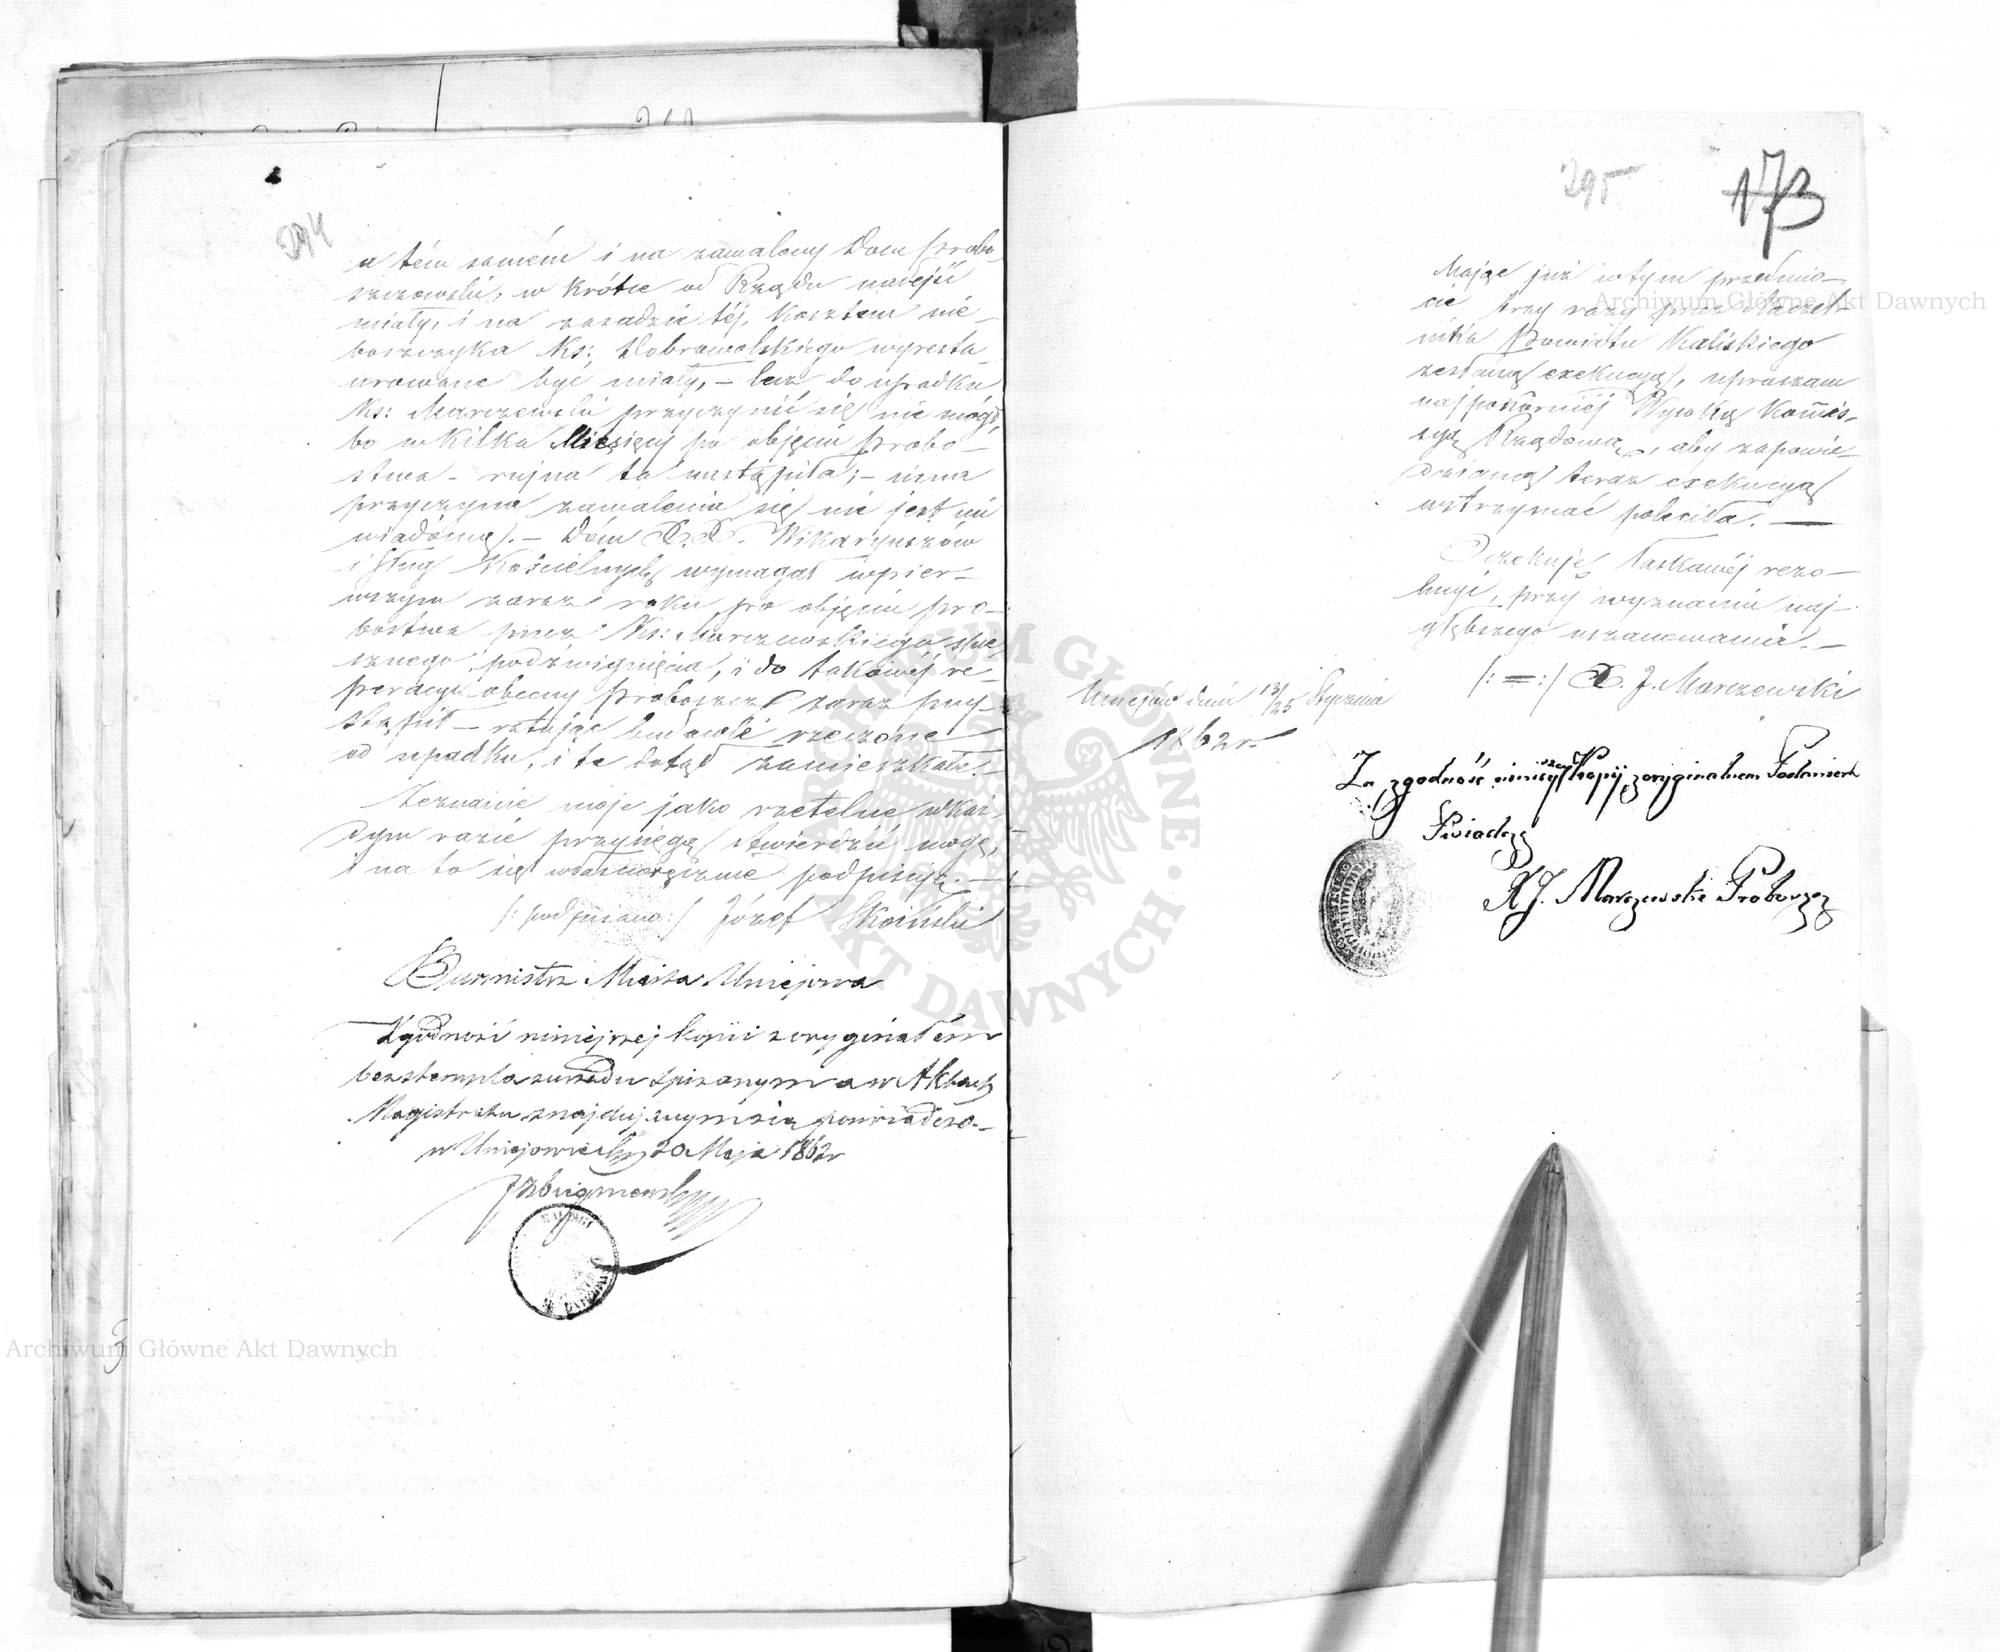 294
a tém samém i na zawalony Dom probo
szczowski, w krótce od Rządu nadejść
miały, i na zasadzie téj, kosztem nie-
boszczyka Ks: Dobrowolskiego wyresta-
urowane być miały, – lecz do upadku
Ks: Marczewski przyczynić się nie mógł,
bo w kilka Miesięcy po objęciu probo-
stwa – rujna ta nastąpiła; – inna
przyczyna zawalenia się nie jest mi
wiadomą. – Dom X.X. Wikaryuszów
i sług Kościelnych wymagał w pier-
wszym zaraz roku po objęciu pro-
bostwa przez Ks: Marczewskiego, spie
sznego podźwignięcia, i do takowéj re-
peracyi obecny Proboszcz zaraz przy-
stąpił – ratując budowle rzeczone
od upadku, i te dotąd zamieszkałe. –
Zeznanie moje jako rzetelne w każ-
dym razie przysięgą stwierdzić mogę,
i na to się własnoręcznie podpisuję. –
/: podpisano :/ Józef Skoiński
Burmistrz Miasta Uniejowa
Zgodność niniejszej kopii z oryginałem
bez stempla z urzędu spisanym a w Aktach
Magistratu znajdującym się poswiadcza. –
w Uniejowie 20 Maja 1862 r
295
173
Mając już w tym przedmio-
cie trzy razy przez Naczel-
nika Powiatu Kaliskiego
zesłaną exekucyą, upraszam
najpokorniéj Wysoką Kommis-
syą Rządową, aby zapowie-
dzianą teraz exekucyą
wstrzymać poleciła. —
Oczekuję łaskawéj rezo-
lucyi, przy wyznaniu naj-
głębszego uszanowania. –
/: = :/ X. J. Marczewski
Uniejów dnia 13/25 Stycznia
1862 r.
Za zgodność niniejszej Kopij z oryginałem
Swiadczę
X J. Marczewski Proboszcz
Archiwum Główne Akt Dawnych
Archiwum Główne Akt Dawnych
ARCHIWUM GŁÓWNE AKT DAWNYCH